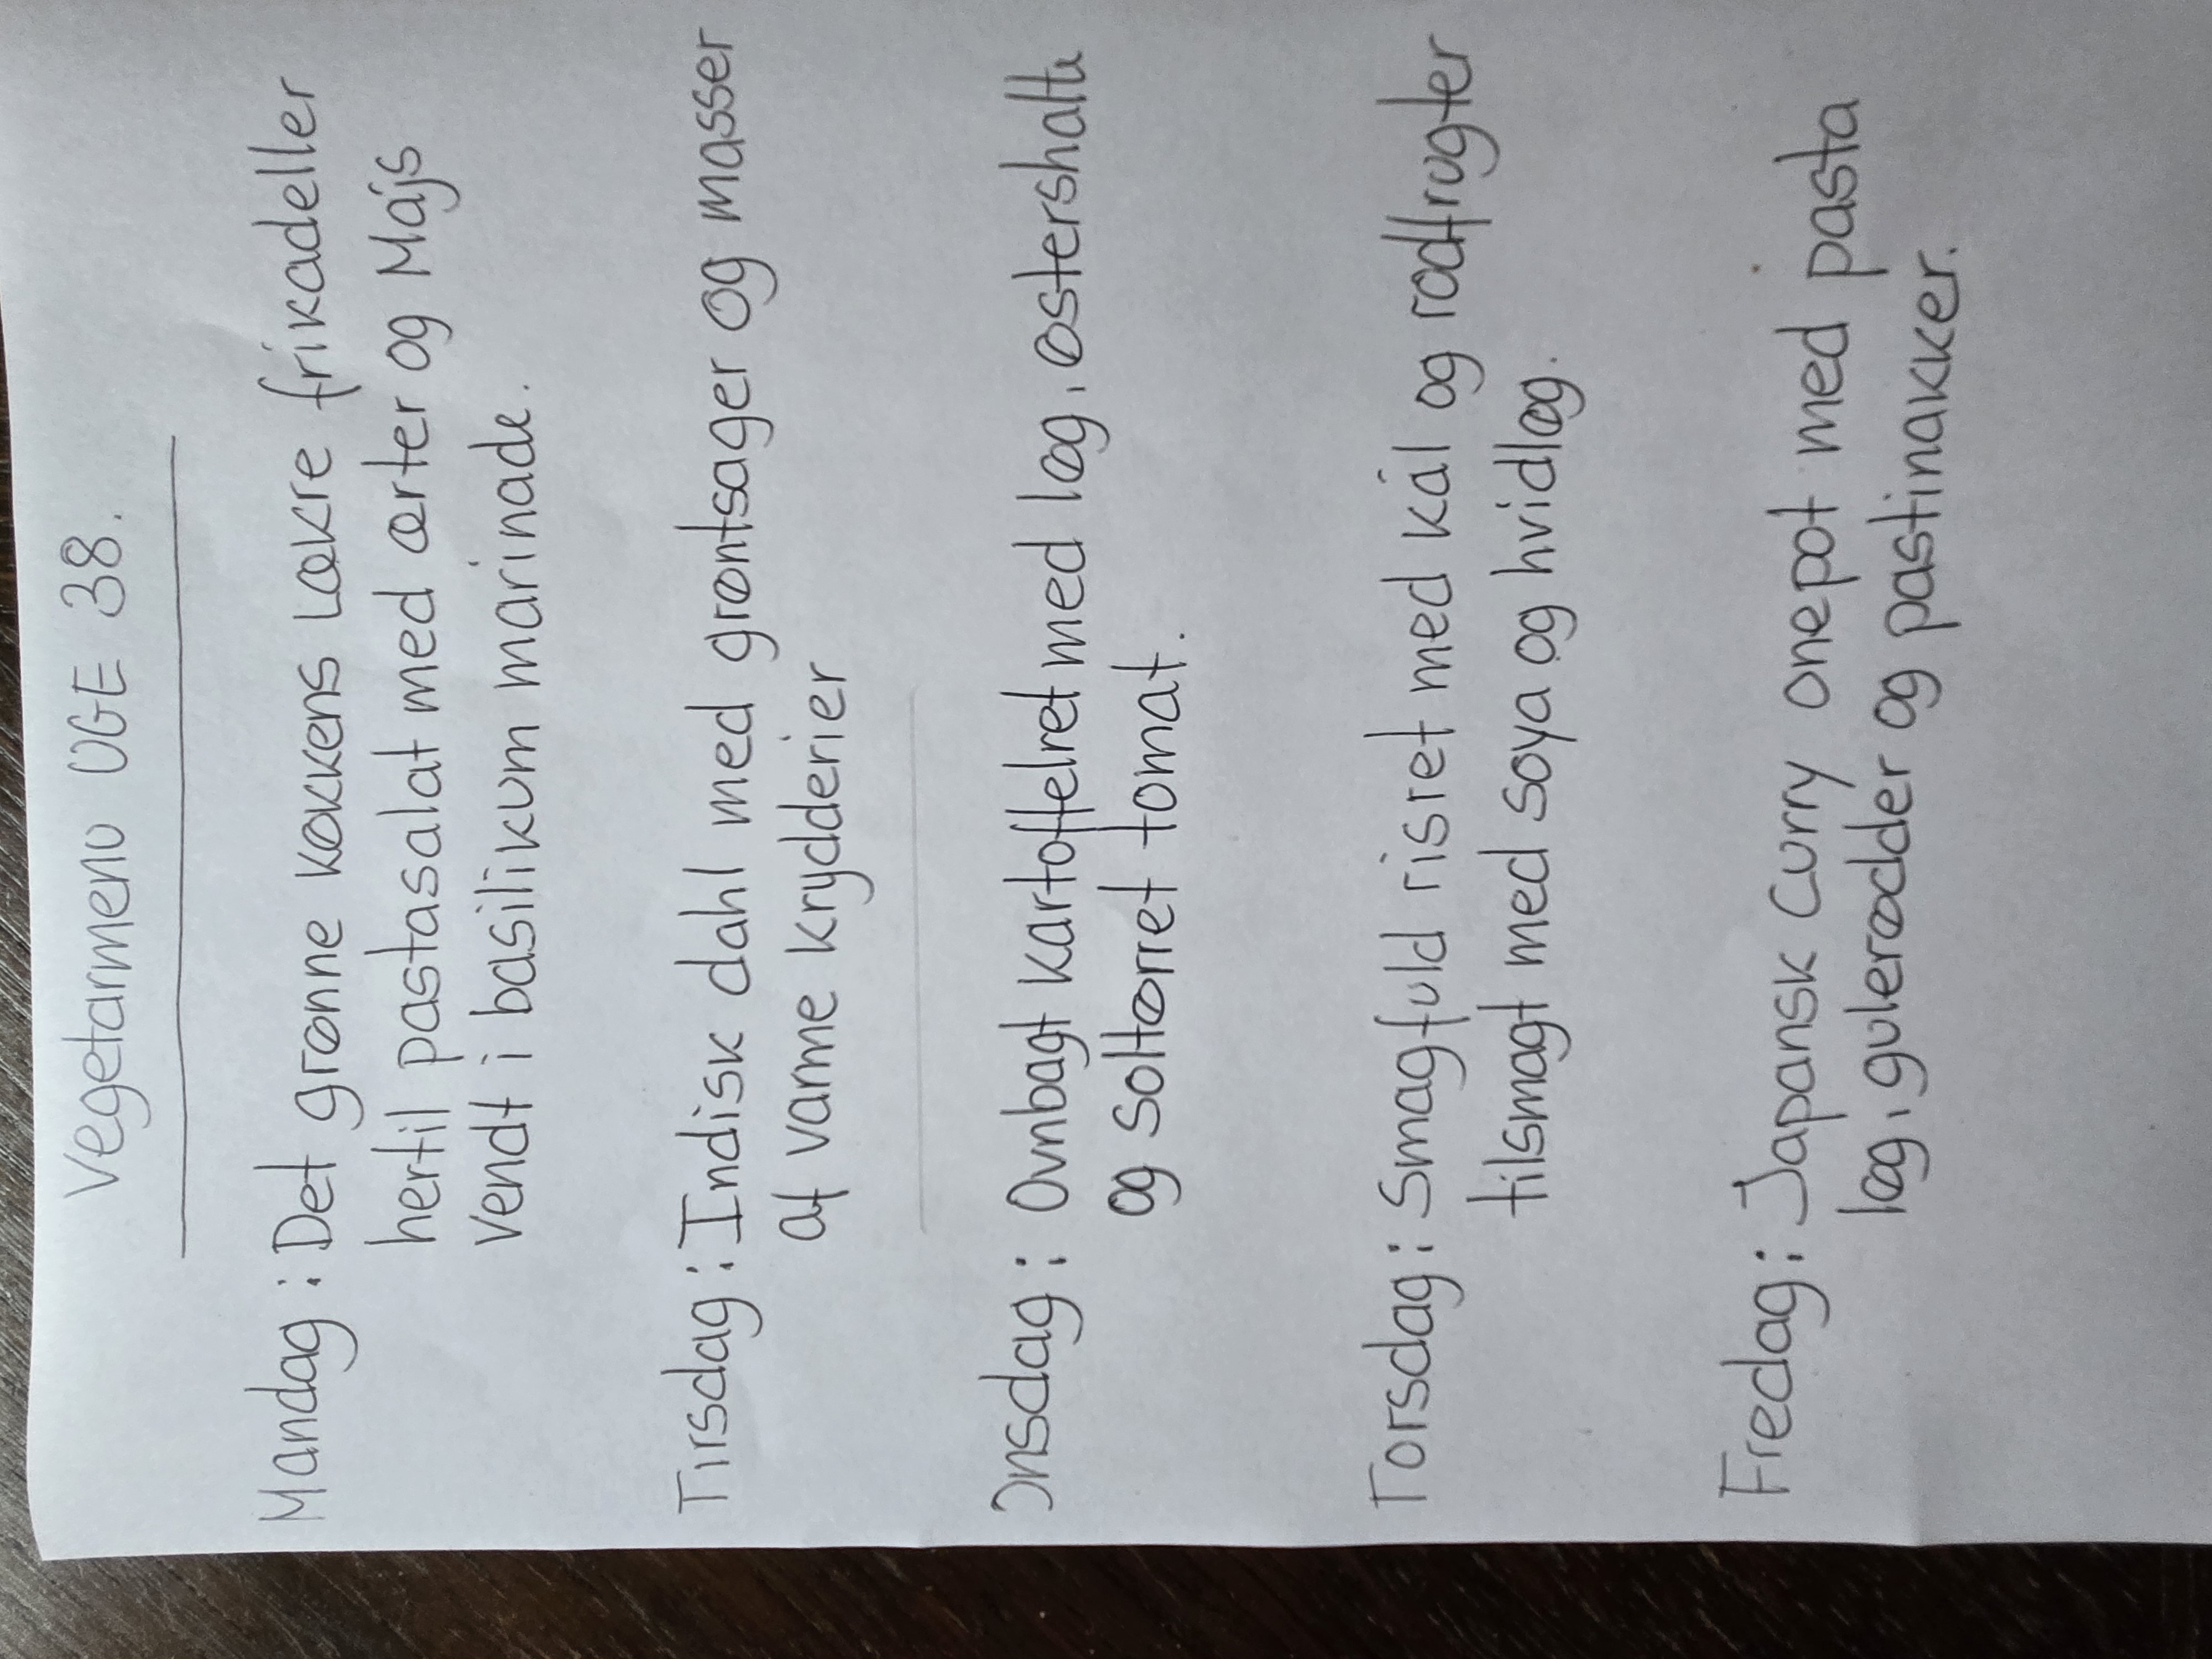 Vegetarmenu UGE 38.
Mandag: Det grønne køkkens lækre frikadeller
hertil pastasalat med ærter og Majs
vendt i basilikum marinade.
Tirsdag: Indisk dahl med grøntsager og masser
af varme krydderier
Onsdag: Ovnbagt kartoffelret med løg, østershatte
og soltørret tomat.
Torsdag: Smagfuld risret med kål og rodfrugter
tilsmagt med soya og hvidløg.
Fredag: Japansk Curry onepot med pasta
løg, gulerødder og pastinakker.